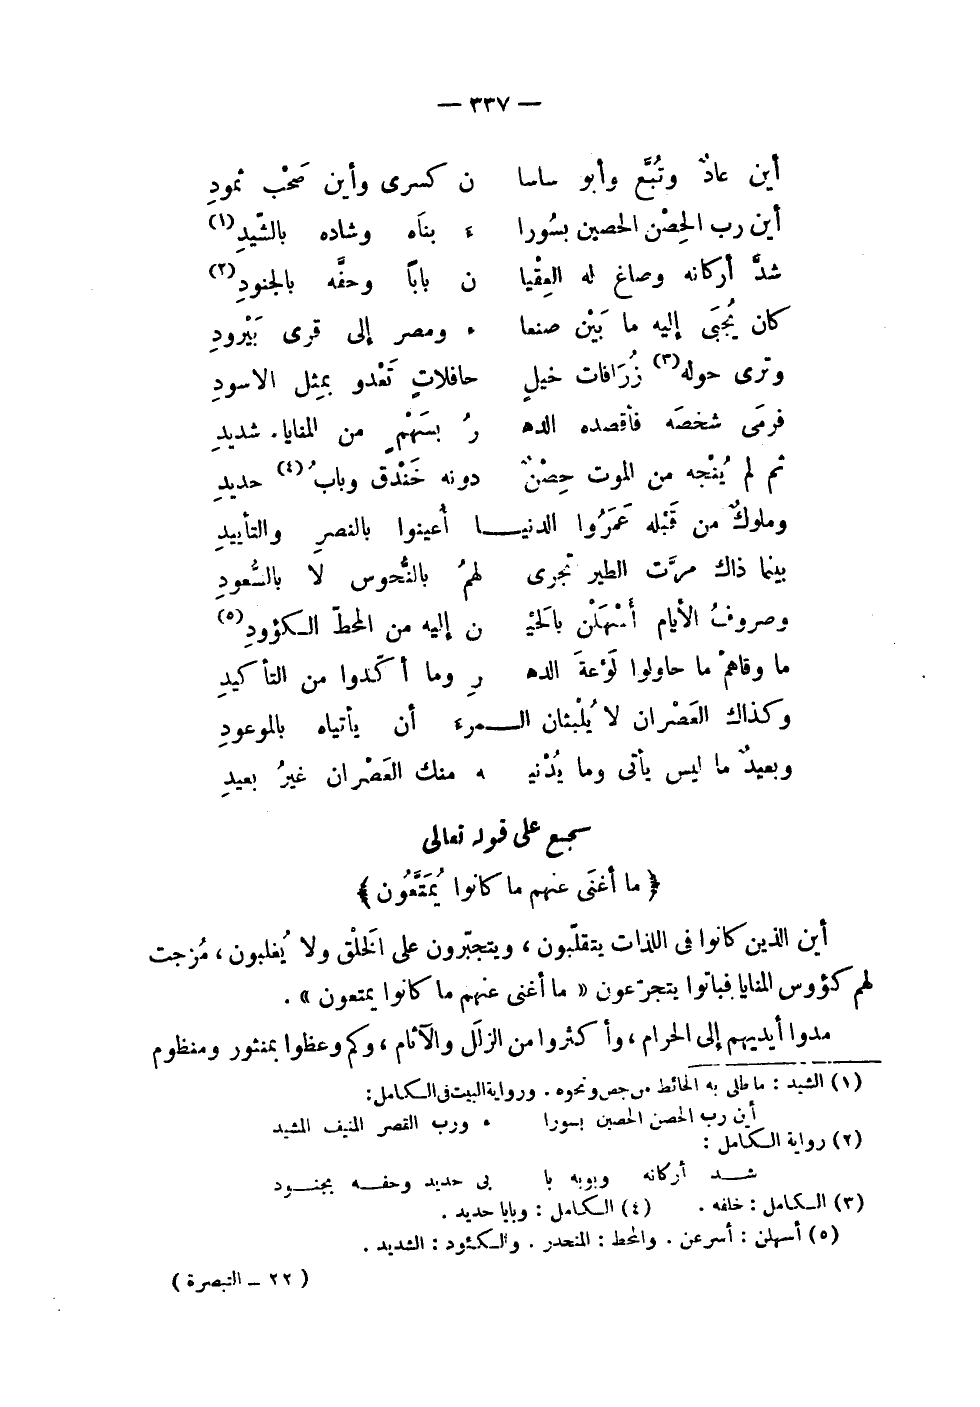 — ٣٣٧ —
أين عادٌ وتُبَّع وأبو ساسا ن كسرى وأين صَحْب ثمودِ
أين رب الحِصْن الحصين بسُورا ء بناَه وشاده بالشّيدِ(١)
شدَّ أركانه وصاغ له العِقْيا ن بابًا وحفَّه بالجنودِ(٢)
كان يُجبَى إليه ما بَيْن صنعا ء ومصر إلى قرى بَيْرودِ
وترى حوله(٣) زُرَافات خيلٍ حافلاتٍ تَعْدو بمِثل الاسودِ
فرمَى شخصَه فأقصده الده رُ بسَهْمٍ من المنايا شديدِ
ثم لم يُنْجه من الموت حِصْنٌ دونه خَنْدق وبابُ(٤) حديدِ
وملوكٌ من قَبْله عَمَرُوا الدنيـــا أُعينوا بالنصرِ والتأييدِ
بينما ذاك مرَّت الطير تجرى لهمُ بالنُّحوس لا بالسُّعودِ
وصروفُ الأيام أَسْهَلْن بالَحيْ ن إليه من المحطّ الكؤودِ(٥)
ما وقاهمْ ما حاولوا لَوْعةَ الده رِ وما أكّدوا من التأكيدِ
وكذاك العَصْران لا يُلْبثان الــمرء أن يأتياه بالموعودِ
وبعيدٌ ما ليس يأتى وما يُدْني ه منك العَصْران غيرُ بعيدِ
سجع على قوله تعالى
﴿ ما أغنَى عنهم ما كانوا يُمَتَّعُون ﴾
أين الذين كانوا فى اللذات يتقلّبون ، ويتجبّرون على الَخلْق ولا يُغلبون ، مُزجت
لهم كؤوس المنايا فباتوا يتجرّعون « ما أغنى عنهم ما كانوا يمتعون » .
مدوا أيديهم إلى الحرام ، وأكثروا من الزلَل والآثام ، وكم وعظوا بمنثور ومنظوم
(١) الشيد : ما طلى به الحائط من جص ونحوه . ورواية البيت فى الكامل :
أين رب الحصن الحصين بسورا ء ورب القصر المنيف المشيد
(٢) رواية الكامل :
شــد أركانه وبوبه با بى حديد وحفــه بجنــود
(٣) الكامل : خلفه . (٤) الكامل : وبابا حديد .
(٥) أسهلن : أسرعن . والمحط : المنحدر . والكئود : الشديد .
( ٢٢ – التبصرة )